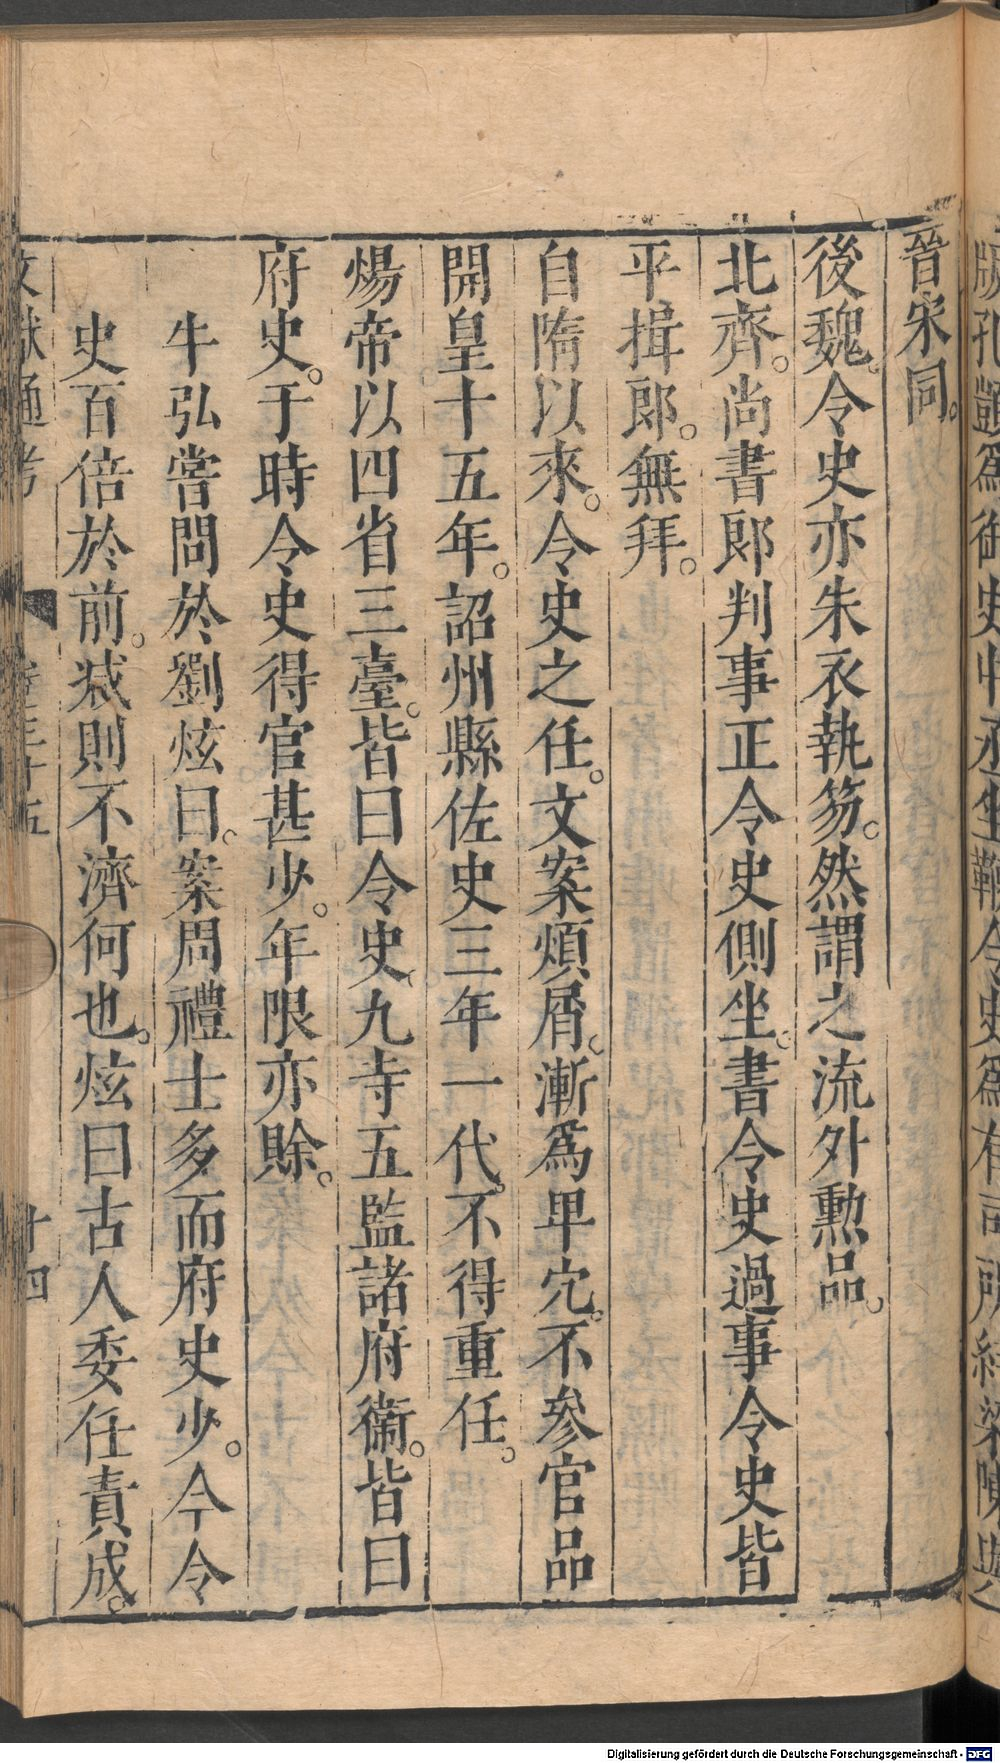 版孔顗爲御史中丞坐鞭令史爲有司所糾梁陳與
晉宋同。
後魏。令史亦朱衣執笏。然謂之流外勲品。
北齊。尚書郎判事正令史側坐。書令史過事令史皆
平揖郎。無拜。
自隋以來。令史之任。文案煩屑。漸爲卑冗。不參官品
開皇十五年。詔州縣佐史三年一代。不得重任。
煬帝以四省三臺。皆曰令史。九寺五監諸府衞。皆曰
府史。于時令史得官甚少。年限亦賒。
牛弘嘗問於劉炫曰。案周禮士多而府史少。今令
史百倍於前。減則不濟何也。炫曰古人委任責成。
文獻通考 卷三十五 十四
Digitalisierung gefördert durch die Deutsche Forschungsgemeinschaft - DFG